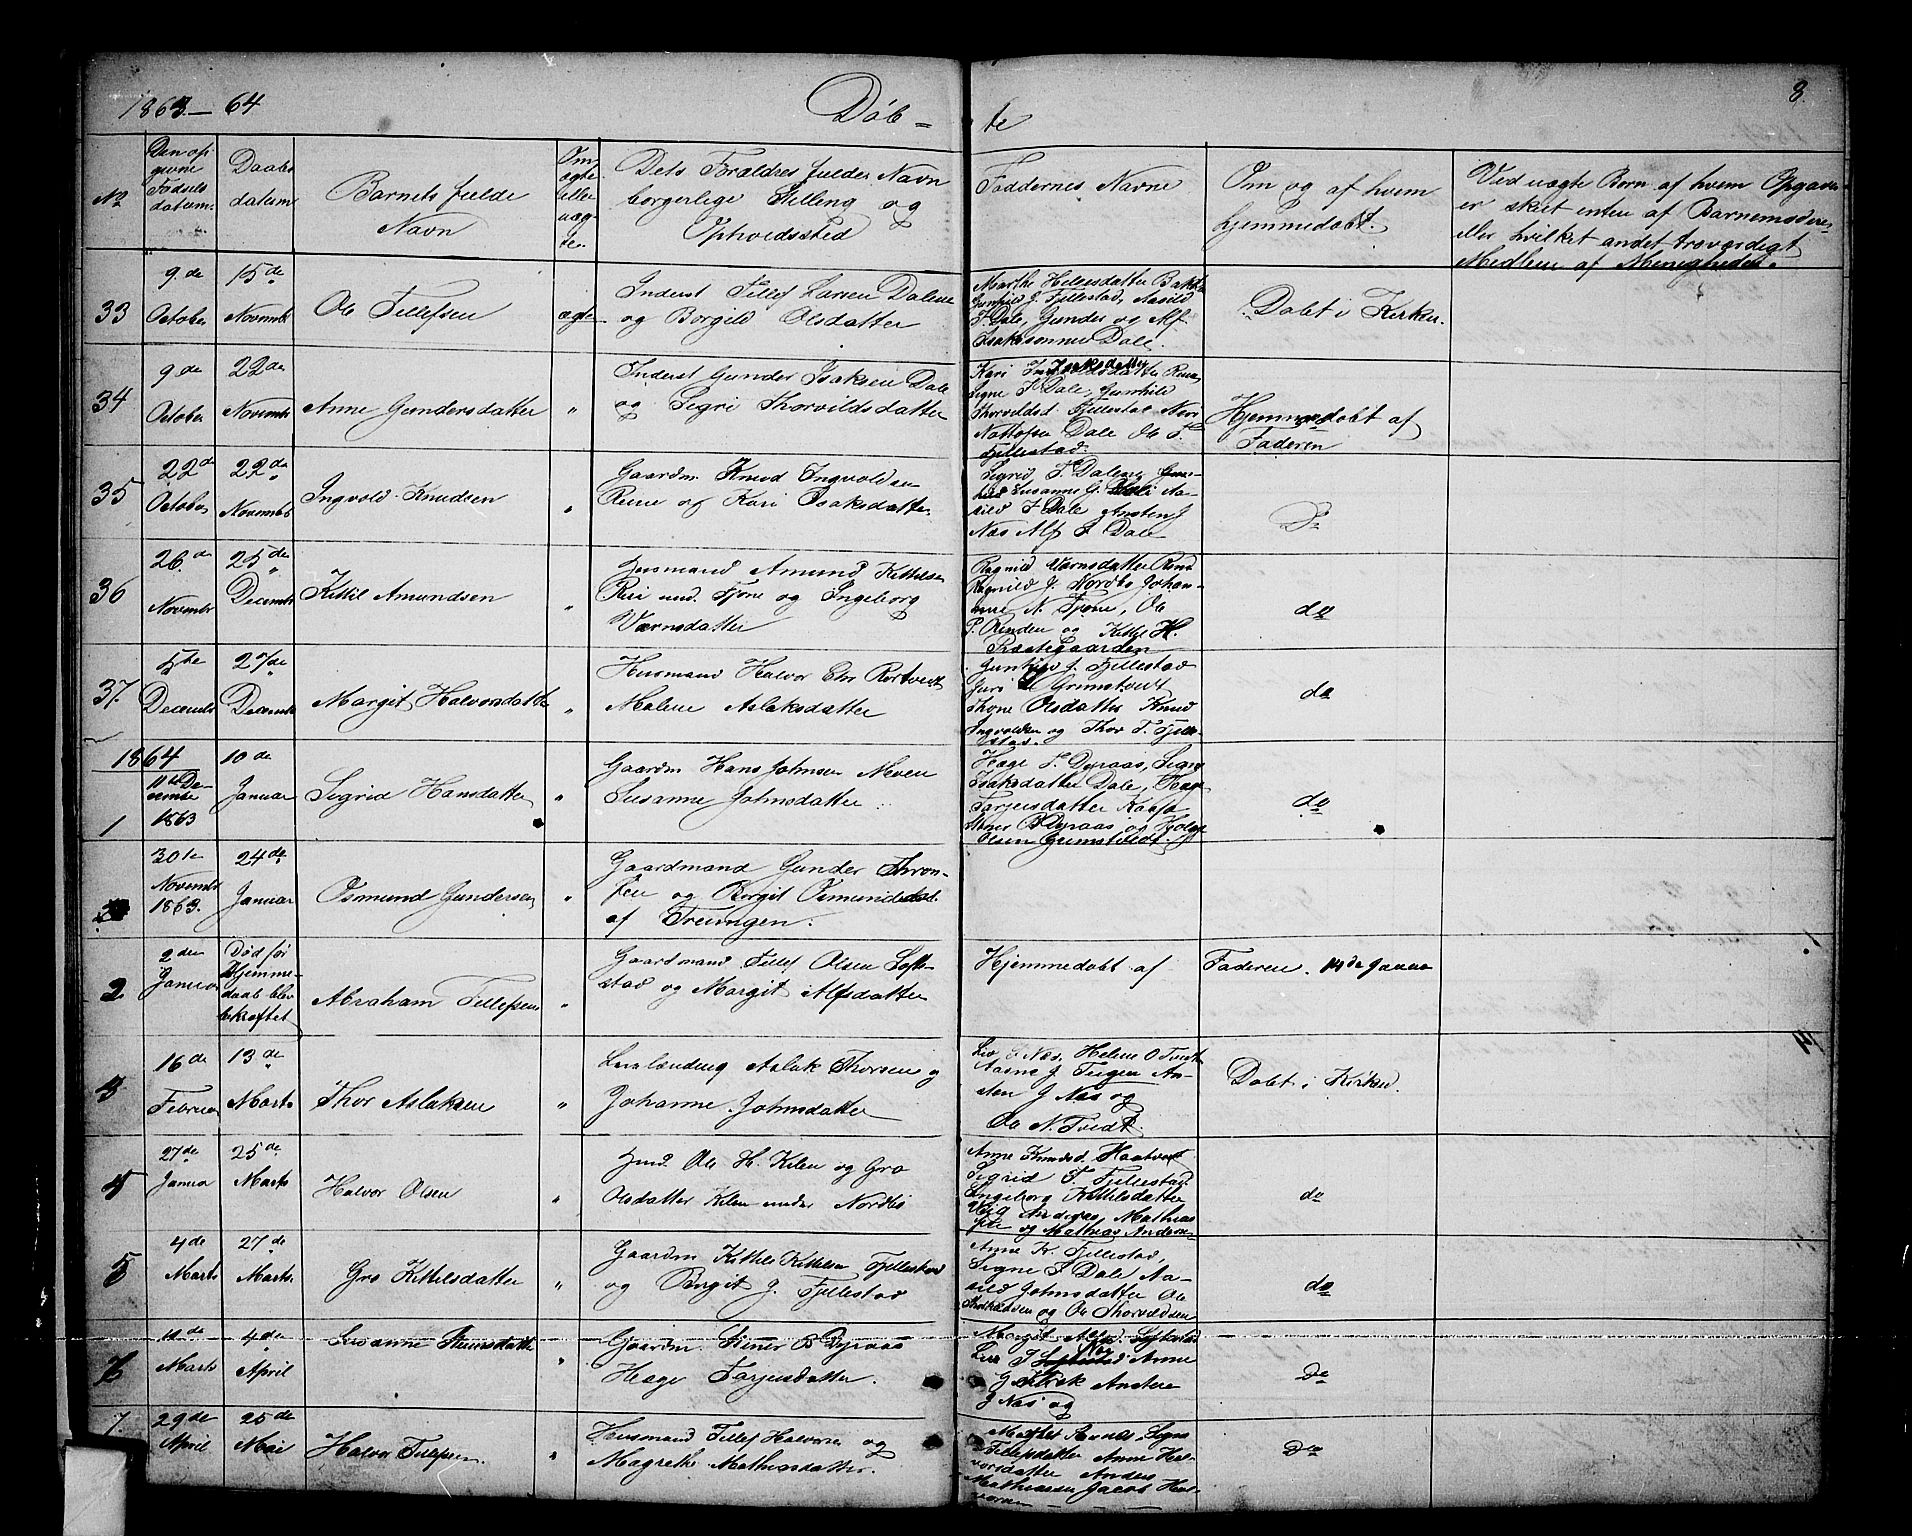 1863 — 64
Døb =
te
8.
No
Den op
givne
Fødsels
datum.
Daabs
datum
Barnets fulde
Navn
Om
ægte
eller
uæg-
te.
Dets Forældres fulde Navn
borgerlige Stilling og
Opholdssted
Faddernes Navne
Om og af hvem
hjemmedøbt.
Ved uægte Børn af hvem Opgaven
er skeet enten af Barnemoderen
eller hvilket andet troværdigt
Medlem af Menigheden.
33
9de
October
15de
Novembr
Ole Tellefsen
ægte
Inderst Tellef Larsen Dalene
og Borgild Olsdatter
Marthe
Gunhild J. Fjellestad, Aasild
I. Dale, Gunder og Alf
Isaksønner Dale.
Døbt i Kirken.
34
9de
October
22de
Novembr
Anne Gundersdatter
"
Inderst Gunder Isaksen Dale
og Sigri Thorvildsdatter
Kari Isaksdatter
Signe I Dale, Gunhild
Thorvildsd Fjellestad
Dale Ole T.
Fjellestad.
Hjemmedøbt af
Faderen
35
22de
October
22de
Novembr
Ingvold Knudsen
"
Gaardm Knud Ingvoldsen
og Kari Isaksdatter
Sigrid I Dalene
Susanne G. Aa-
sild I Dale Ansten J
Næs Alf I Dale
Do
36
26de
Novembr
25de
Decembr
Kittil Amundsen
"
Huusmand Amund Kittelsen
und. Fjone og Ingeborg
Værnsdatter
Ragnild Værnsdatter
Ragnild J. Nordbø Johan-
N. Fjone, Ole
P. Rinden og Kittil H.
Præstegaarden
do
37.
5te
Decembr
27de
Decembr
Margit Halvorsdatter
"
Husmand Halvor Chr Rørtvedt
Malene Aslaksdatter
Gunhild J. Fjellestad
Juri Grimstvedt
Thone Olsdatter Knud
Ingvoldsen og Thor T. Fjelle-
stad.
do
1864
1
11te De-
cembr
1863
10de
Januar
Sigrid Hansdatter
"
Gaardm Hans Johnsen Neven
Susanne Johnsdatter
Hæge T. Dyraas, Signe
Isaksdatter Dale, Hæge
Tarjeisdatter Kaasa
Stener B Dyraas og Hjelge
Olsen Grimstvedt.
do
30te
Novembr
1863.
24de
Januar
Osmund Gundersen
"
Gaardmand Gunder Thron-
sen og Birgit Osmundsdat.
af Treungen.
2
2den
Januar
Død før
Hjemme-
daab blev
bekræftet
Abraham Tellefsen
"
Gaardmand Tellef Olsen Løfte-
stad og Margit Alfsdatter
Hjemmedøbt af Faderen. 14de Januar
3
16de
Februar
13de
Marts
Thor Aslaksen
"
Leilænding Aslak Thorsen og
Johanne Johnsdatter
Liv Næs, Helene O Tvedt
Aasne J. Teigen An-
sten J Næs og
Ole N. Tvedt.
Døbt i Kirken.
4
27de
Januar
25de
Marts
Halvor Olsen
"
Ole H. Kilen og Gro
Olsdatter Kilen under Nordbø
Anne Knudsd. Haatvedt
Sigrid T. Fjellestad
Ingeborg Kittelsdatter
Mathias
og Mathias Andersen
do
5
4de
Marts
27de
Marts.
Gro Kittilsdatter
"
Gaardm Kittil Kittilsen Fjellestad
og Birgit J. Fjellestad
Anne K. Fjellestad,
Signe I Dale Aa-
sild Johnsdatter Ole
og Ole Thorvildsen
do
11de
Marts
4de
April
Susanne Stenersdatter
"
Gaardm. Stiner B Dyraas
Hæge Tarjeisdatter.
Margit Alfsd. Løftestad
Liv J Næs Anne
J Ansten
J Næs og
Do
7.
29de
April
25de
Mai
Halvor Tellefsen.
"
Husmand Tellef Halvorsen og
Magrethe Mathiasdatter.
Signe
Tellefsdatter Anne Hal-
vorsdatter Anders
Mathiassen Jacob Hal-
vorsen
Do